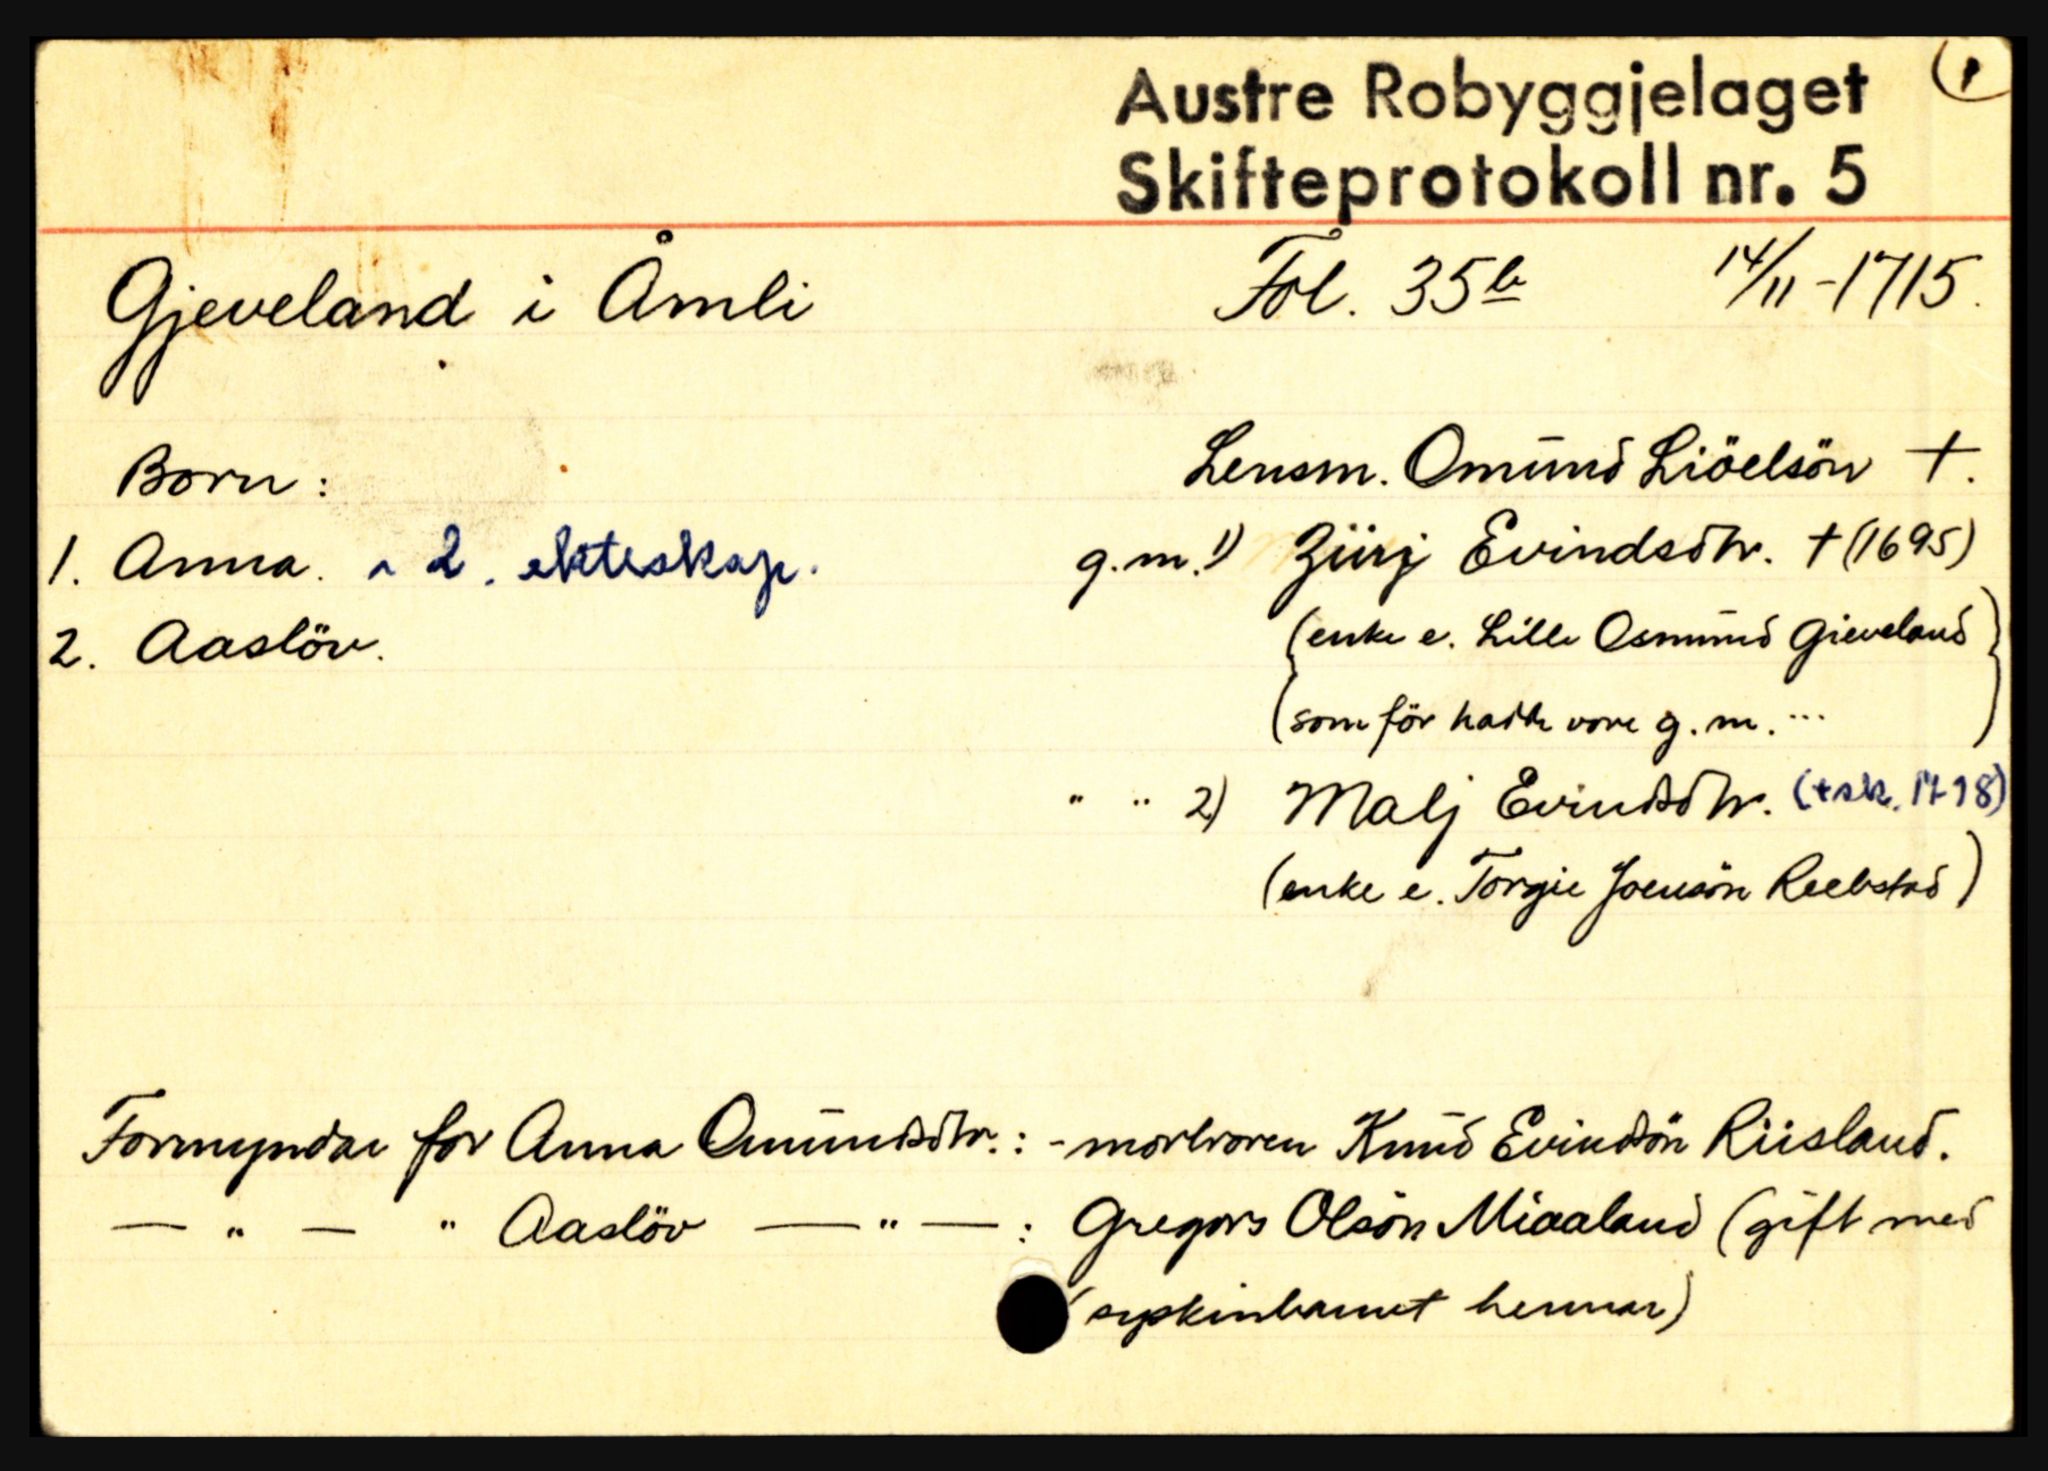 (1
Austre Robyggjelaget
Skifteprotokoll nr. 5
Gjeveland i Åmli Fol. 35b 14/11-1715.
Born: Lensm. Omund Liöelsön †.
1. Anna. 2. ekteskap. g.m. 1) Züri Evindsdtr. † (1695)
2. Aaslöv. (enke e. Lille Osmund Gieveland)
(som för hadde vore g.m. ...)
" " 2) Malj Evindsdtr. († sk. 1718)
(enke e. Torgie Joensön Reebstad)
Formyndar for Anna Omundsdtr.: - morbroren Knud Evindsön Riisland.
— " — " Aaslöv — " — : Gregors Olsön Miaaland (gift med
syskinbarnet hennar)